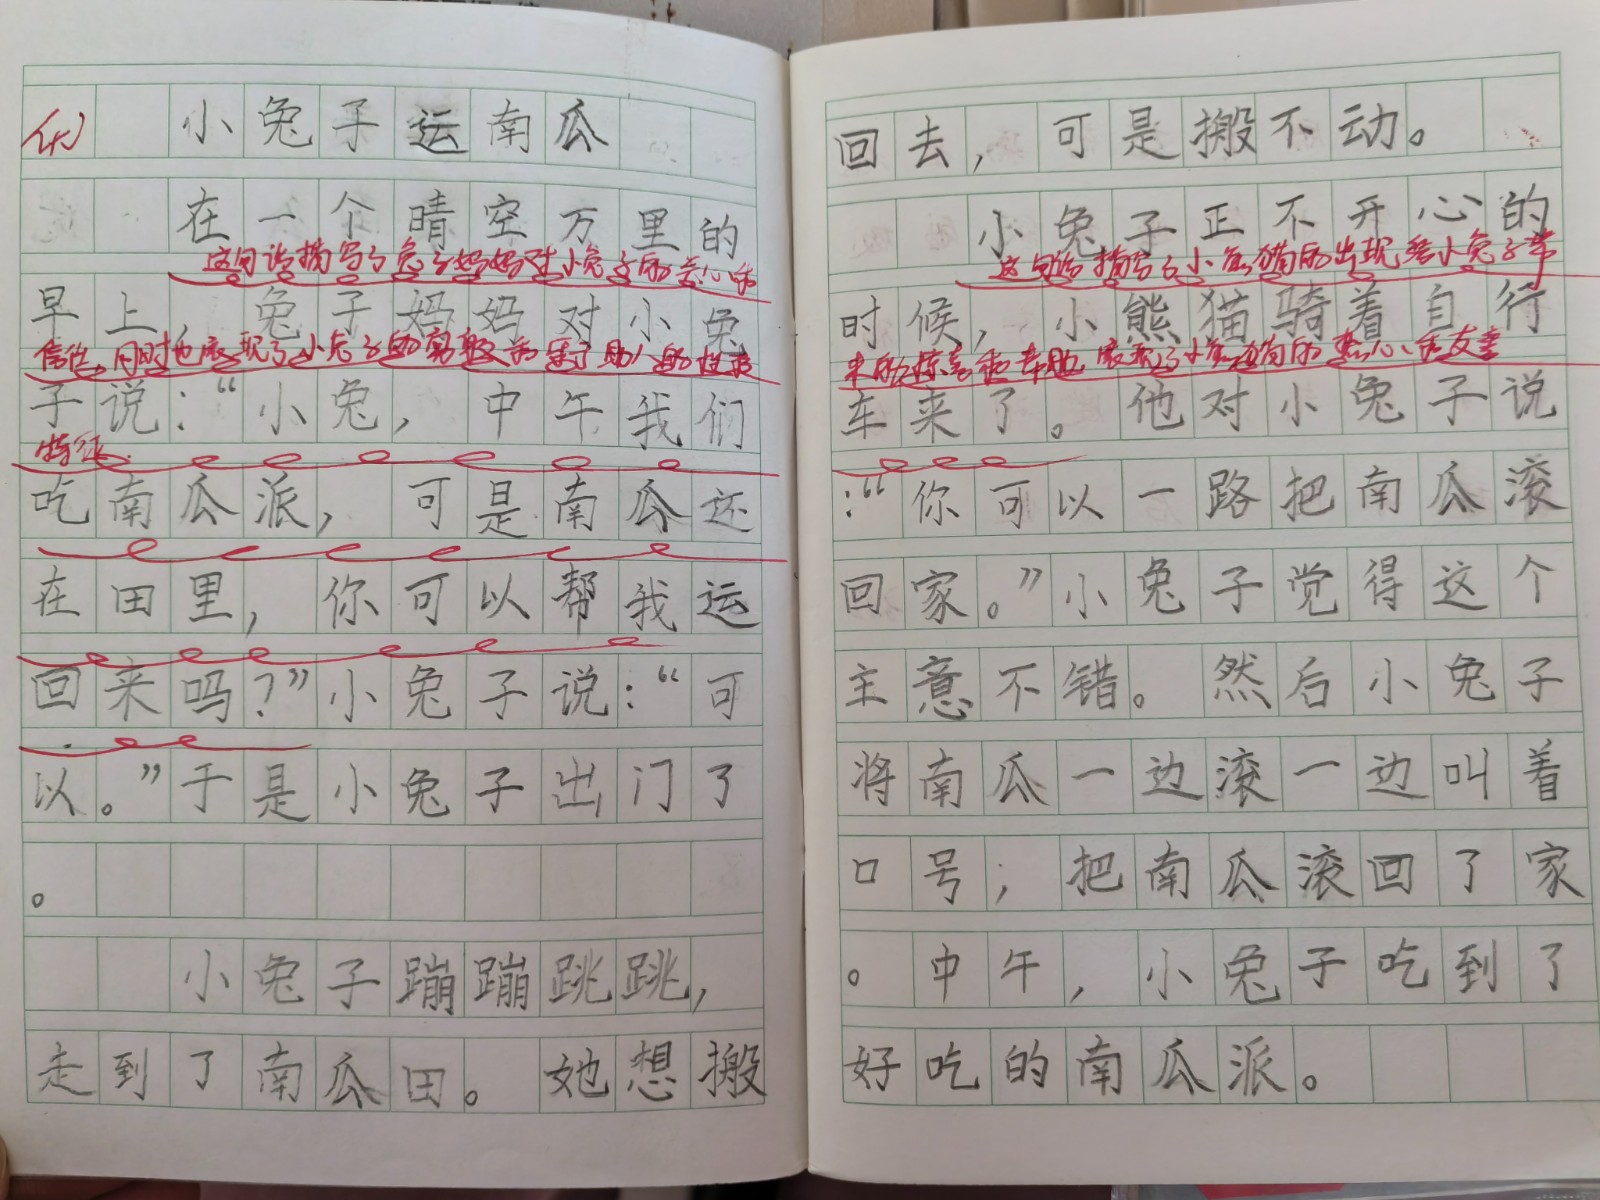 小兔子运南瓜
在一个晴空万里的
这句话描写了兔子妈妈对小兔子的关心和
早上，兔子妈妈对小兔
信任。同时也展现了小兔子的勇敢和乐于助人的性格
子说：“小兔，中午我们
特征。
吃南瓜派，可是南瓜还
在田里，你可以帮我运
回来吗？”小兔子说：“可
以。”于是小兔子出门了
。
小兔子蹦蹦跳跳，
走到了南瓜田。她想搬
回去，可是搬不动。
小兔子正不开心的
这句话描写了小熊猫的出现给小兔子带
时候，小熊猫骑着自行
来的惊喜和帮助，展现了小熊猫的热心和友善
车来了。他对小兔子说
：“你可以一路把南瓜滚
回家。”小兔子觉得这个
主意不错。然后小兔子
将南瓜一边滚一边叫着
口号；把南瓜滚回了家
。中午，小兔子吃到了
好吃的南瓜派。